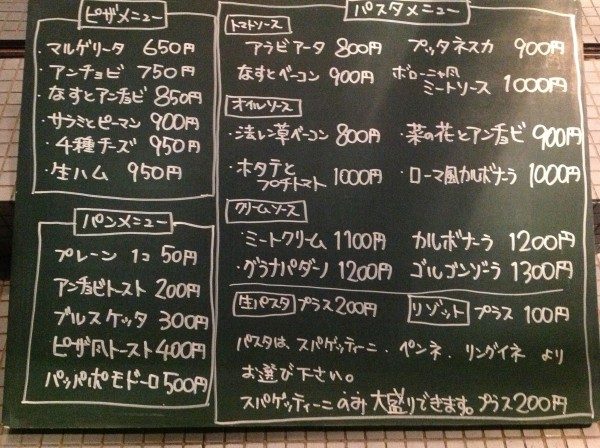 ピザメニュー
・マルゲリータ 650円
・アンチョビ 750円
・なすとアンチョビ 850円
・サラミとピーマン 900円
・4種チーズ 950円
・生ハム 950円
パンメニュー
プレーン 1コ 50円
アンチョビトースト 200円
ブルスケッタ 300円
ピザ風トースト 400円
パッパポモドーロ 500円
パスタメニュー
トマトソース
アラビアータ 800円 プッタネスカ 900円
なすとベーコン 900円 ボローニャ風
ミートソース 1000円
オイルソース
・法レン草ベーコン 800円 ・菜の花とアンチョビ 900円
・ホタテと
プチトマト 1000円 ・ローマ風カルボナーラ 1000円
クリームソース
・ミートクリーム 1100円 カルボナーラ 1200円
・グラナパダーノ 1200円 ゴルゴンゾーラ 1300円
生パスタ プラス200円 リゾット プラス 100円
パスタは、スパゲッティーニ、ペンネ、リングイネ より
お選び下さい。
スパゲッティーニのみ大盛りできます。プラス200円